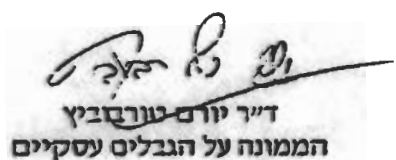 ד״ר יורם טורבוביץ
הממונה על הגבלים עסקיים